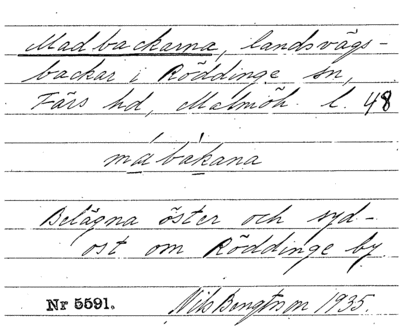 Madbackarna, landsvägs-
backar i Röddinge sn,
Färs hd, Malmöh. l. 48
mábákana
Belägna öster och syd-
ost om Röddinge by
Nr 5591. Nils Bengtsson 1935.